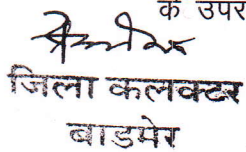 के उपर
जिला कलक्टर
बाडमेर